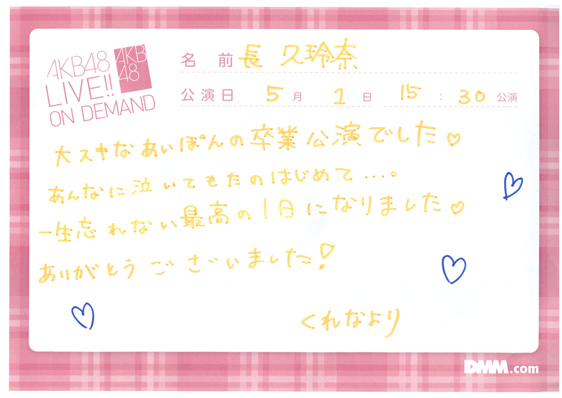 AKB48
LIVE!!
ON DEMAND
AKB
48
名前 長 久玲奈
公演日 5月1日 15:30公演
大スキなあいぽんの卒業公演でした♡
あんなに泣いてもたのはじめて…。
一生忘れない最高の1日になりました♡
ありがとうございました!
くれなより
DMM.com